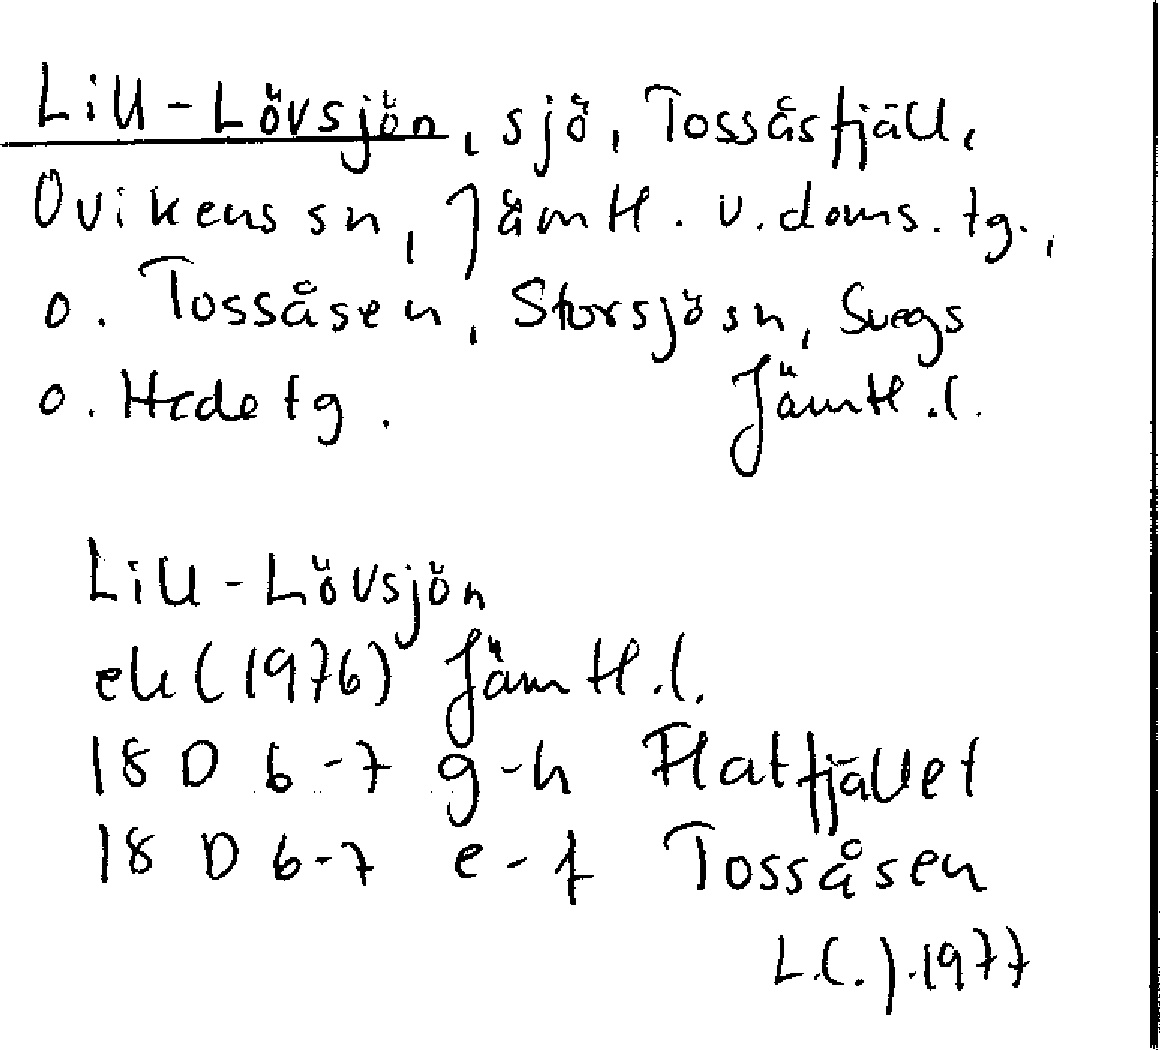 Lill-Lövsjön, sjö, Tossåsfjäll,
Ovikens sn, Jämtl. v. doms. tg.,
o. Tossåsen, Storsjö sn, Svegs
o. Hede tg. Jämtl. l.
Lill-Lövsjön
ek (1976) Jämtl. l.
18 D 6-7 g-h Flatfjället
18 D 6-7 e-f Tossåsen
L.C.J. 1977